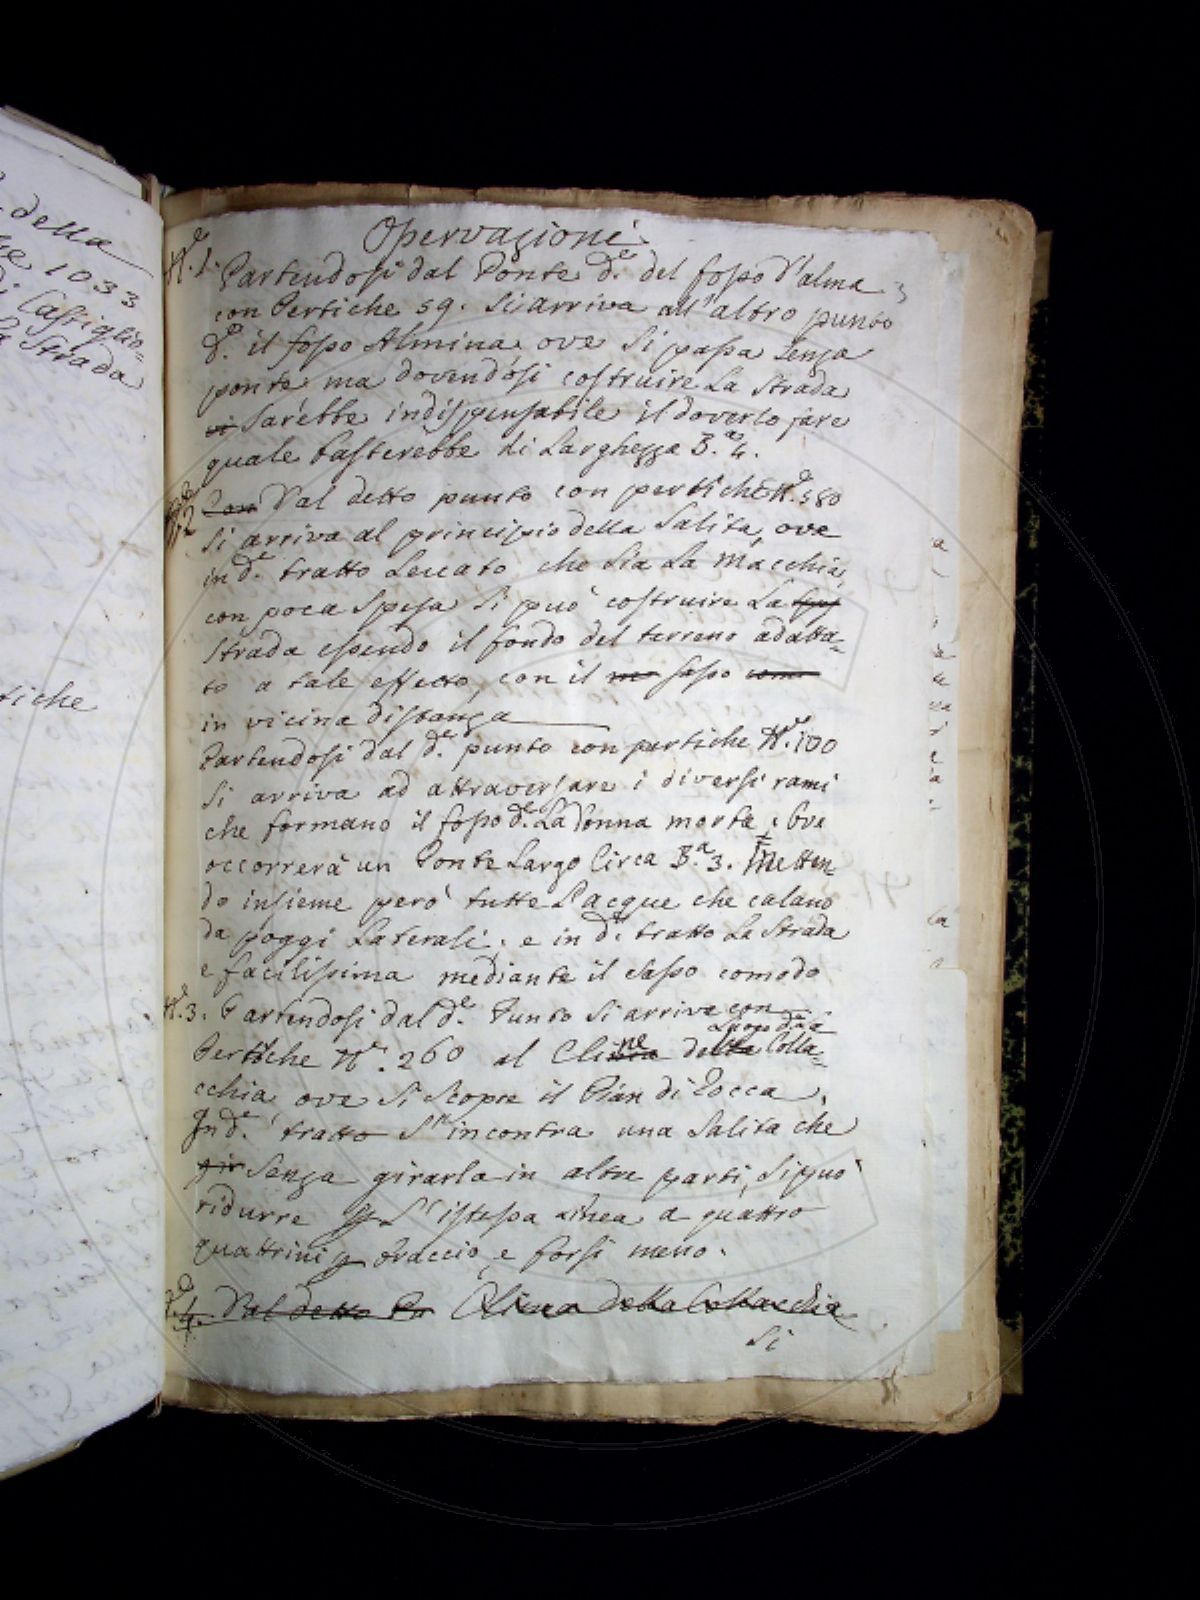 della
1033
di Castiglio=
Strada
tiche
Osservazioni
N.e 1. Partendosi dal Ponte d.e del fosso d'alma
con Pertiche 59. Si arriva all'altro punto
d.e il fosso Almina ove Si passa Senza
ponte ma dovendosi costruire La Strada
vi Sarebbe indispensabile il doverlo fare
quale basterebbe di Larghezza B.a 4.
N.2 Con Dal detto punto con pertiche N.e 580
Si arriva al principio della Salita, ove
in d.e tratto Levato che Sia La Macchia,
con poca Spesa Si può costruire La Spes
Strada essendo il fondo del terreno adatta=
to a tale effetto, con il me Sasso como
in vicina distanza
Partendosi dal d.e punto con pertiche N.e 100
Si arriva ad attraversare i diversi rami
che formano il fosso d.e La donna morta, ove
occorrerà un Ponte Largo Circa B.a 3. Metten=
do insieme però tutte L'acque che calano
da poggi Laterali, e in d.e tratto La Strada
e facilissima mediante il Sasso comodo
N.e 3. Partendosi dal d.e Punto Si arriva con
Luogo d.a
Pertiche N.e 260 al Cline della Colla=
cchia ove Si Scopre il Pian di Rocca,
In d.e tratto S'incontra una Salita che
gir Senza girarla in altre parti, Si può
ridurre p L'istessa Linea a quattro
quattrini p braccio, e forsi meno.
4. Dal detto Pu Clina della Collacchia
Si